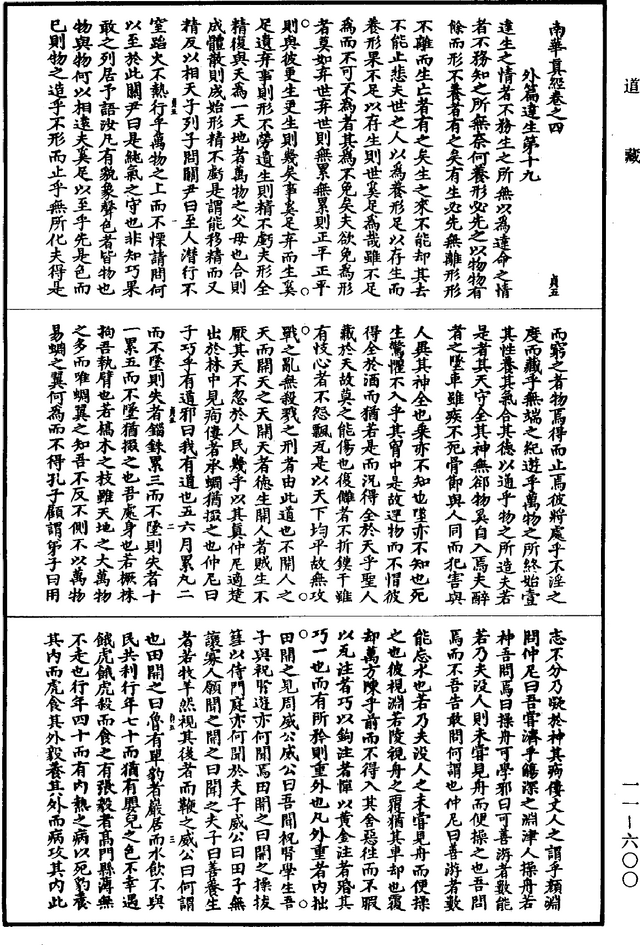 道藏
南華真經卷之四
外篇達生第十九
貞五
達生之情者不務生之所無以為達命之情
者不務知之所無奈何養形必先之以物物有
餘而形不養者有之矣有生必先無離形形
不離而生亡者有之矣生之來不能卻其去
不能止悲夫世之人以為養形足以存生而
養形果不足以存生則世奚足為哉雖不足
為而不可不為者其為不免矣夫欲免為形
者莫如棄世棄世則無累無累則正平正平
則與彼更生更生則幾矣事奚足棄而生奚
足遺棄事則形不勞遺生則精不虧夫形全
精復與天為一天地者萬物之父母也合則
成體散則成始形精不虧是謂能移精而又
精反以相天子列子問關尹曰至人潛行不
窒蹈火不熱行乎萬物之上而不慄請問何
以至於此關尹曰是純氣之守也非知巧果
敢之列居予語汝凡有貌象聲色者皆物也
物與物何以相遠夫奚足以至乎先是色而
已則物之造乎不形而止乎無所化夫得是
而窮之者物焉得而止焉彼將處乎不淫之
度而藏乎無端之紀遊乎萬物之所終始壹
其性養其氣合其德以通乎物之所造夫若
是者其天守全其神無郤物奚自入焉夫醉
者之墜車雖疾不死骨節與人同而犯害與
人異其神全也乘亦不知也墜亦不知也死
生驚懼不入乎其胷中是故遻物而不慴彼
得全於酒而猶若是而況得全於天乎聖人
藏於天故莫之能傷也復讎者不折鏌干雖
有忮心者不怨飄瓦是以天下均平故無攻
戰之亂無殺戮之刑者由此道也不開人之
天而開天之天開天者德生開人者賊生不
厭其天不忽於人民幾乎以其真仲尼適楚
出於林中見痀僂者承蜩猶掇之也仲尼曰
子巧乎有道邪曰我有道也五六月累丸二
而不墜則失者錙銖累三而不墜則失者十
一累五而不墜猶掇之也吾處身也若橛株
拘吾執臂也若槁木之枝雖天地之大萬物
之多而唯蜩翼之知吾不反不側不以萬物
易蜩之翼何為而不得孔子顧謂弟子曰用
志不分乃凝於神其痀僂丈人之謂乎顏淵
問仲尼曰吾嘗濟乎觴深之淵津人操舟若
神吾問焉曰操舟可學邪曰可善游者數能
若乃夫沒人則未嘗見舟而便操之也吾問
焉而不吾告敢問何謂也仲尼曰善游者數
能忘水也若乃夫沒人之未嘗見舟而便操
之也彼視淵若陵視舟之覆猶其車卻也覆
卻萬方陳乎前而不得入其舍惡往而不暇
以瓦注者巧以鉤注者憚以黃金注者殙其
巧一也而有所矜則重外也凡外重者內拙
田開之見周威公威公曰吾聞祝腎學生吾
子與祝腎遊亦何聞焉田開之曰開之操拔
篲以侍門庭亦何聞於夫子威公曰田子無
讓寡人願聞之開之曰聞之夫子曰善養生
者若牧羊然視其後者而鞭之威公曰何謂
也田開之曰魯有單豹者巖居而水飲不與
民共利行年七十而猶有嬰兒之色不幸遇
餓虎餓虎殺而食之有張毅者高門縣薄無
不走也行年四十而有內熱之病以死豹養
其內而虎食其外毅養其外而病攻其內此
一一—六〇〇